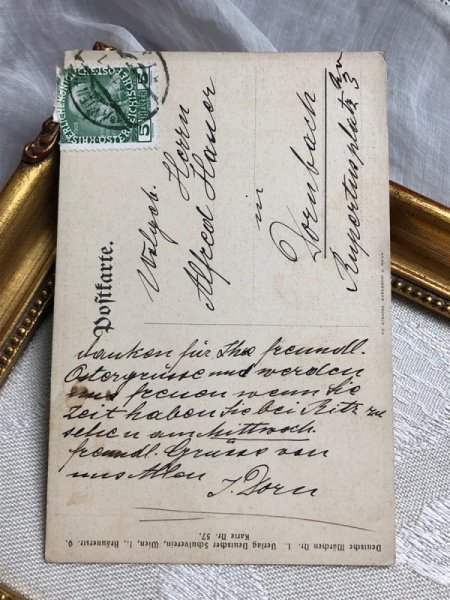 Postkarte.
Wolgeb.
Herrn
Alfred Hauer
in
Dornbach
Rupertusplatz
3
danken für Ihre freundl.
Ostergrüsse und werden
uns freuen wenn Sie
Zeit haben Sie bei Ritz zu
sehen am Mittwoch
freundl. Gruss von
uns Allen
J. Dorn
Deutsche Märchen Nr. 1. Verlag Deutscher Schulverein, Wien, I., Bräunerstr. 9.
Karte Nr. 57.
5
5